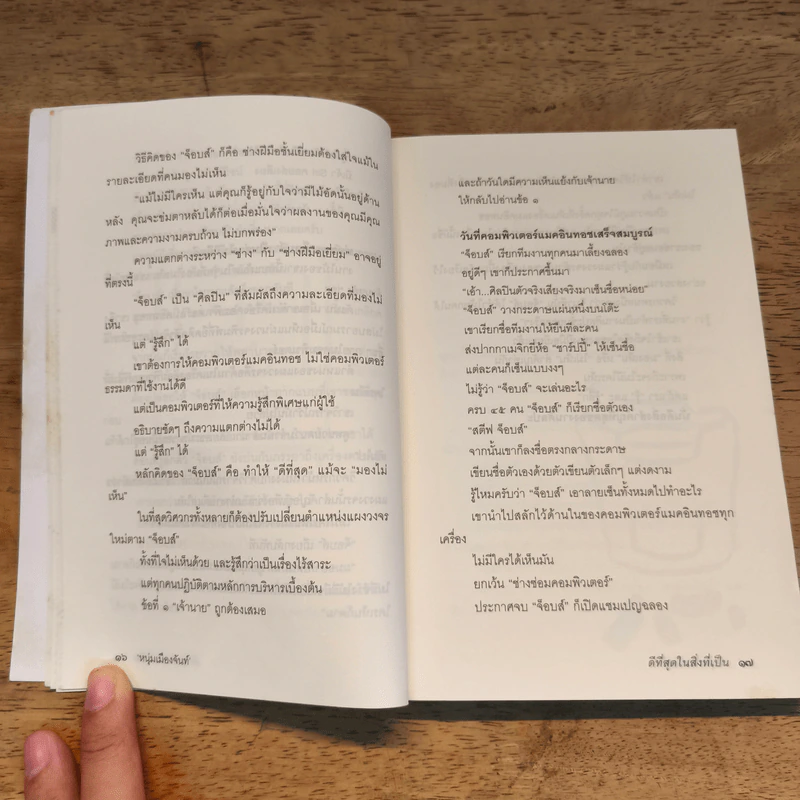 วิธีคิดของ "จ็อบส์" ก็คือ ช่างฝีมือชั้นเยี่ยมต้องใส่ใจแม้ใน
รายละเอียดที่คนมองไม่เห็น
"แม้ไม่มีใครเห็น แต่คุณก็รู้อยู่กับใจว่ามีไม้อัดนั้นอยู่ด้าน
หลัง คุณจะข่มตาหลับได้ก็ต่อเมื่อมั่นใจว่าผลงานของคุณมีคุณ
ภาพและความงามครบถ้วน ไม่บกพร่อง"
ความแตกต่างระหว่าง "ช่าง" กับ "ช่างฝีมือเยี่ยม" อาจอยู่
ที่ตรงนี้
"จ็อบส์" เป็น "ศิลปิน" ที่สัมผัสถึงความละเอียดที่มองไม่
เห็น
แต่ "รู้สึก" ได้
เขาต้องการให้คอมพิวเตอร์แมคอินทอช ไม่ใช่คอมพิวเตอร์
ธรรมดาที่ใช้งานได้ดี
แต่เป็นคอมพิวเตอร์ที่ให้ความรู้สึกพิเศษแก่ผู้ใช้
อธิบายชัดๆ ถึงความแตกต่างไม่ได้
แต่ "รู้สึก" ได้
หลักคิดของ "จ็อบส์" คือ ทำให้ "ดีที่สุด" แม้จะ "มองไม่
เห็น"
ในที่สุดวิศวกรทั้งหลายก็ต้องปรับเปลี่ยนตำแหน่งแผงวงจร
ใหม่ตาม "จ็อบส์"
ทั้งที่ใจไม่เห็นด้วย และรู้สึกว่าเป็นเรื่องไร้สาระ
แต่ทุกคนปฏิบัติตามหลักการบริหารเบื้องต้น
ข้อที่ ๑ "เจ้านาย" ถูกต้องเสมอ
๑๖ 'หนุ่มเมืองจันท์'
และถ้าวันใดมีความเห็นแย้งกับเจ้านาย
ให้กลับไปอ่านข้อ ๑
วันที่คอมพิวเตอร์แมคอินทอชเสร็จสมบูรณ์
"จ็อบส์" เรียกทีมงานทุกคนมาเลี้ยงฉลอง
อยู่ดีๆ เขาก็ประกาศขึ้นมา
"เอ้า...ศิลปินตัวจริงเสียงจริงมาเซ็นชื่อหน่อย"
"จ็อบส์" วางกระดาษแผ่นหนึ่งบนโต๊ะ
เขาเรียกชื่อทีมงานให้ยืนทีละคน
ส่งปากกาเมจิกยี่ห้อ "ชาร์ปปี้" ให้เซ็นชื่อ
แต่ละคนก็เซ็นแบบงงๆ
ไม่รู้ว่า "จ็อบส์" จะเล่นอะไร
ครบ ๔๕ คน "จ็อบส์" ก็เรียกชื่อตัวเอง
"สตีฟ จ็อบส์"
จากนั้นเขาก็ลงชื่อตรงกลางกระดาษ
เขียนชื่อตัวเองด้วยตัวเขียนตัวเล็กๆ แต่งดงาม
รู้ไหมครับว่า "จ็อบส์" เอาลายเซ็นทั้งหมดไปทำอะไร
เขานำไปสลักไว้ด้านในของคอมพิวเตอร์แมคอินทอชทุก
เครื่อง
ไม่มีใครได้เห็นมัน
ยกเว้น "ช่างซ่อมคอมพิวเตอร์"
ประกาศจบ "จ็อบส์" ก็เปิดแชมเปญฉลอง
ดีที่สุดในสิ่งที่เป็น ๑๗